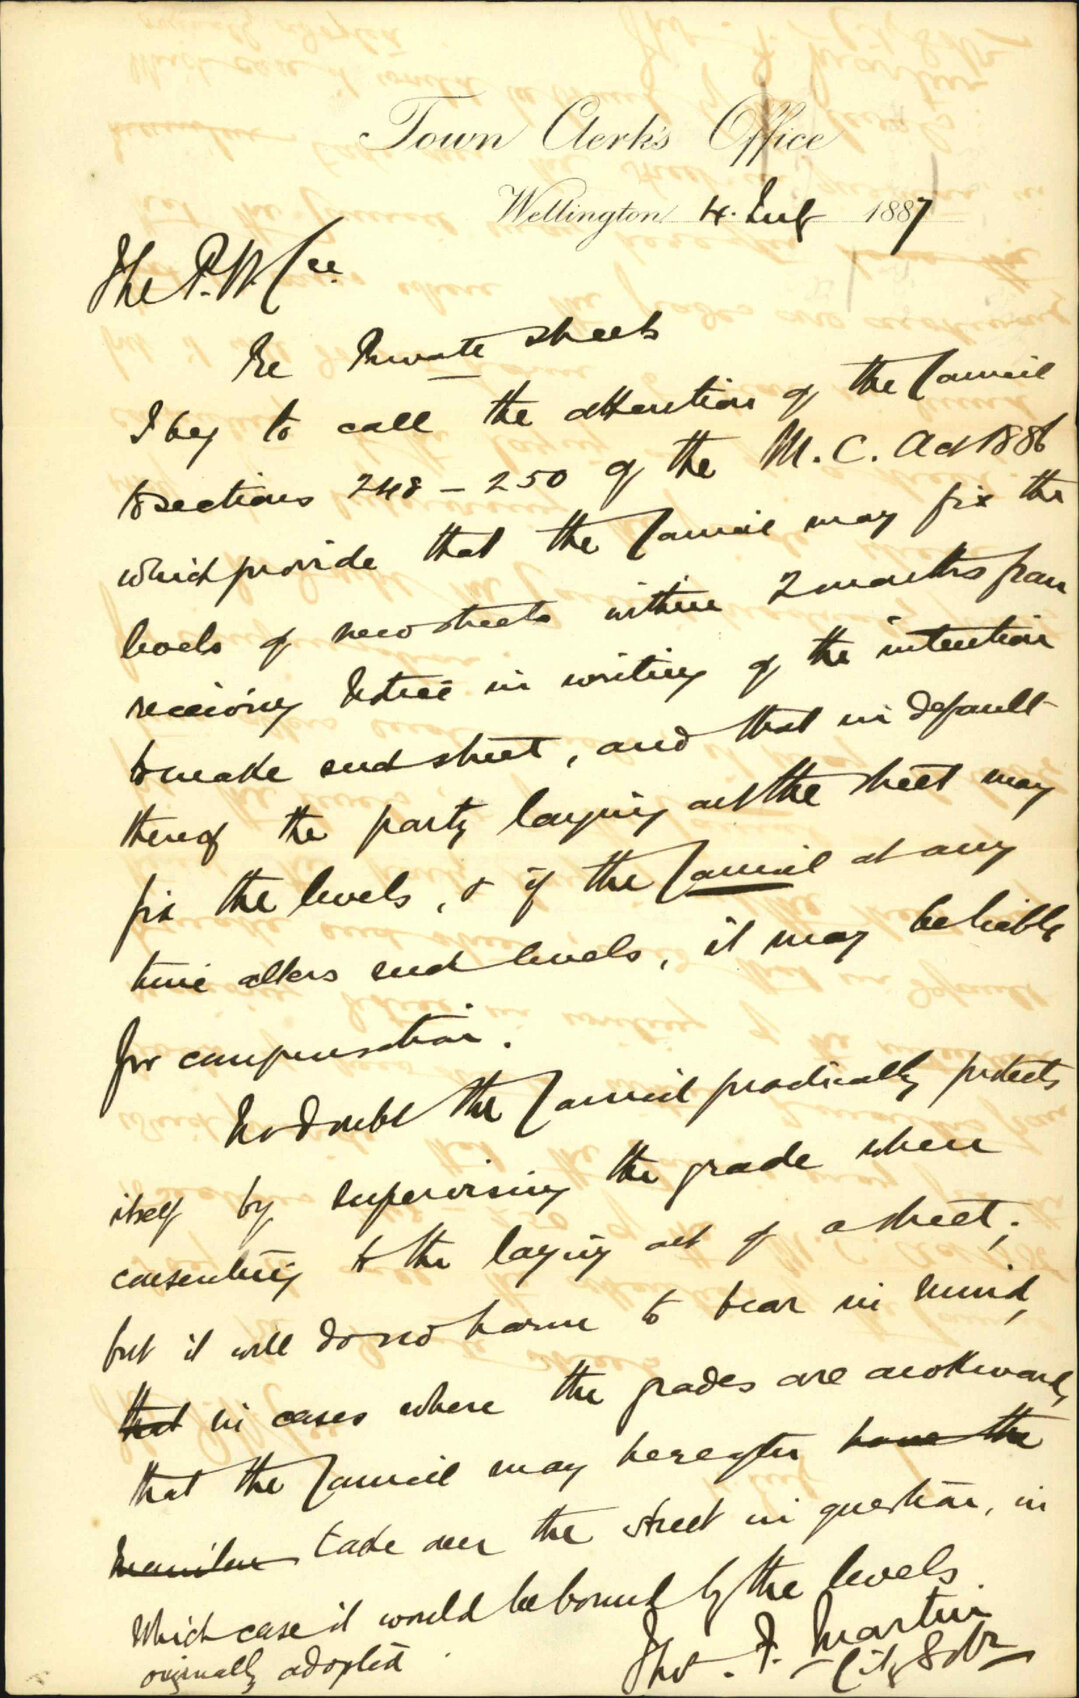 Town Clerk's Office
Wellington 4. July 1887
The P. W. Cee.
Re Private streets
I beg to call the attention of the Council
to sections 248 - 250 of the M. C. Act 1886
which provide that the Council may fix the
levels of new streets within 2 months from
receiving notice in writing of the intention
to make such street, and that in default
thereof the party laying out the street may
fix the levels, & if the Council at any
time alters such levels, it may be liable
for compensation.
No doubt the Council practically protects
itself by supervising the grade when
consenting to the laying out of a street;
but it will do no harm to bear in mind,
that in cases where the grades are awkward,
that the Council may hereafter have the
take over the street in question, in
which case it would be bound by the levels
originally adopted.
Tho. F. Martin
City Solr